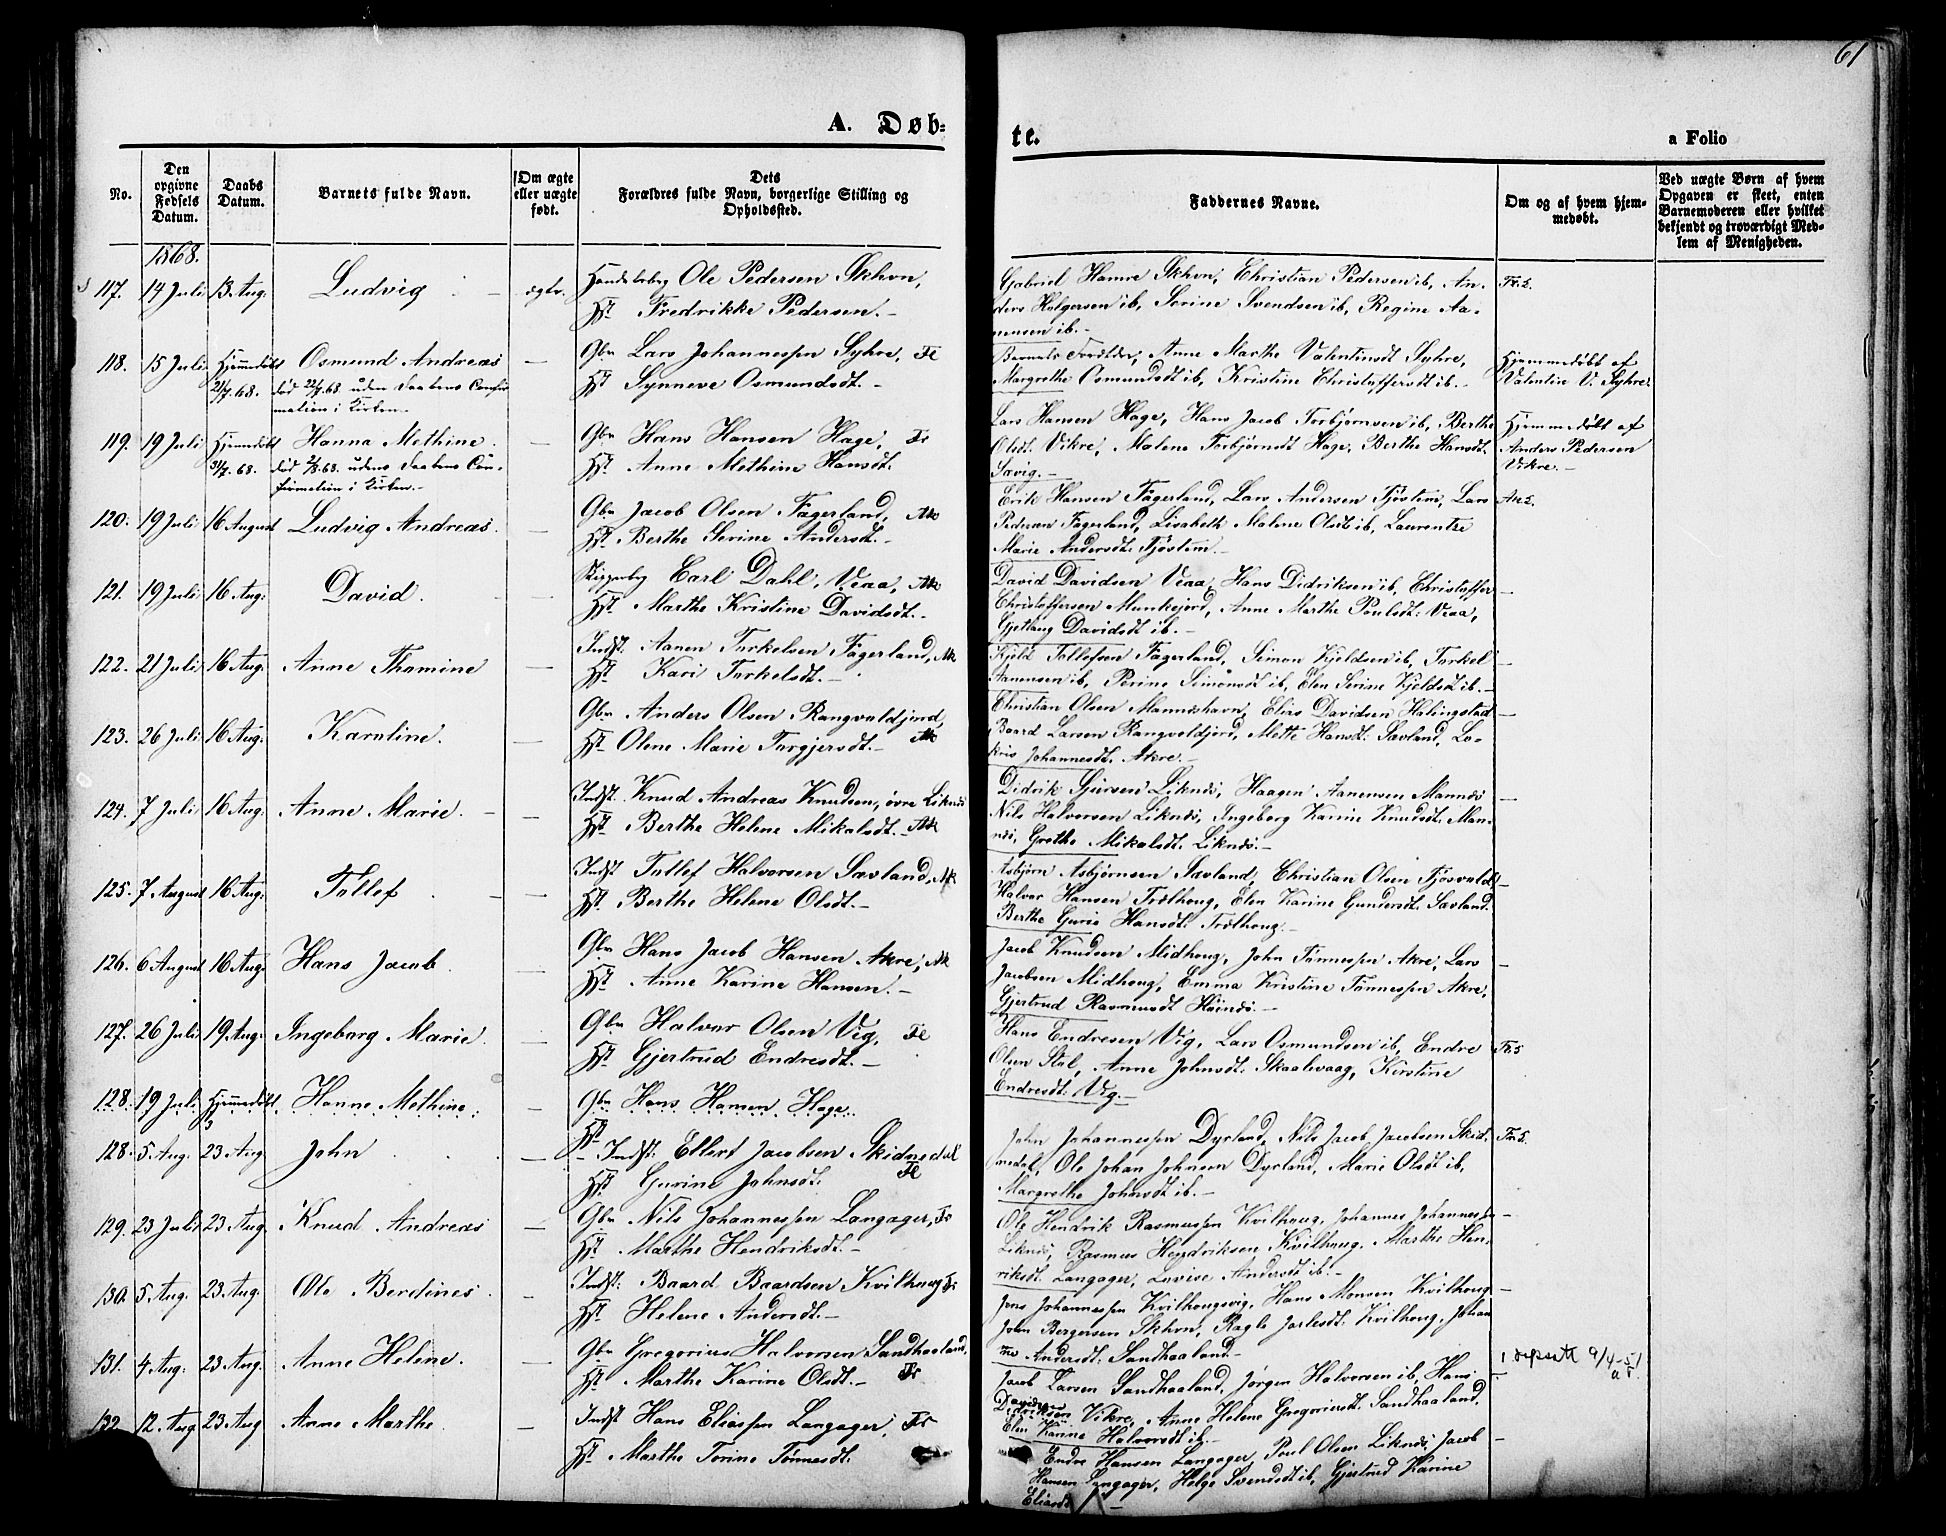 61
A. Døb-
te.
a Folio
No.
Den opgivne Fødsels Datum.
Daabs Datum.
Barnets fulde Navn.
Om ægte eller uægte født.
Dets Forældres fulde Navn, borgerlige Stilling og Opholdssted.
Faddernes Navne.
Om og af hvem hjemmedøbt.
Ved uægte Børn af hvem Opgaven er skeet, enten Barnemoderen eller hvilket bekjendt og troværdigt Medlem af Menigheden.
1868.
117. 14 Juli 13 Aug. Ludvig ægte. Ole Pedersen Skhvn,
Hst Fredrikke Pedersen.
Gabriel Hamre Skhvn, Christian Pedersen ib, An-
ders Holgersen ib, Serine Svendsen ib, Regine Aa-
mensen ib.
118. 15 Juli Hjemmedøbt 21/7.68. Osmund Andreas — Gbr Lars Johannessen Syhre, Fe
død 22/7.68 uden Daabens Confir-
mation i Kirken.
Hst Synneve Osmundsdt.
Barnets Forældre, Anne Marthe Valentinsdt Syhre,
Margrethe Osmundsdt ib, Kristine Christoffersdt ib.
Hjemmedøbt af
Valentin V. Syhre.
119. 19 Juli Hjemmedøbt 31/7.68. Hanna Methine — Gbr Hans Hansen Hage, Fe
død 2/8.68. udens Daabens Con-
firmation i Kirken.
Hst Anne Methine Hansdt.
Lars Hansen Hage, Hans Jacob Torbjørnsen ib, Berthe
Olsdt. Vikre, Malene Torbjørnsdt Hage, Berthe Hansdt.
Sævig.
Hjemmedøbt af
Anders Pedersen
Vikre.
120. 19 Juli 16 August Ludvig Andreas. — Gbr Jacob Olsen Fagerland, Ak
Hst Berthe Serine Andersdt.
Erik Hansen Fagerland, Lars Andersen Tjøstem, Lars
Pedersen Fagerland, Lisabeth Malene Olsdt ib, Laurentze
Marie Andersdt. Tjøstem.
121. 19 Juli 16 Aug: David. — Carl Dahl, Veaa, Ak
Hst. Marthe Kristine Davidsdt.
David Davidsen Veaa, Hans Didriksen ib, Christoffer
Christoffersen Munkejord, Anne Marthe Poulsdt. Veaa,
Gjetlaug Davidsdt ib.
122. 21 Juli 16 Aug: Anne Thomine — Indst. Aanen Torkelsen Fagerland, Ak
Hst Kari Torkelsdt.
Kjeld Tollefsen Fagerland, Simon Kjeldsen ib, Torkel
Aanensen ib, Perine Simonsdt ib, Elen Serine Kjeldsdt ib.
123. 26 Juli 16 Aug: Karoline. — Gbr Anders Olsen Rangvaldjord,
Hst. Olene Marie Torgjersdt. Ak
Christian Olsen Manneshavn, Elias Davidsen Hålingstad
Baard Larsen Rangvaldjord, Mette Hansdt. Sævland, Lo-
Johannesdt. Akre.
124. 7 Juli 16 Aug: Anne Marie. — Indst. Knud Andreas Knudsen, øvre Liknes
Hst Berthe Helene Mikalsdt. Ak
Didrik Sjursen Liknes, Haagen Aanensen Mannes
Nils Halvorsen Liknes, Ingeborg Karine Knudsdt. Man-
nes, Grethe Mikalsdt. Liknes.
125. 7 August 16 Aug: Tollef — Indst Tollef Halvorsen Sævland, Ak
Hst. Berthe Helene Olsdt.
Asbjørn Asbjørnsen Sævland, Christian Olsen Tjøsvold
Halvor Hansen Trælhoug, Elen Karine Gundersdt. Sævland.
Berthe Gurie Hansdt. Trælhoug.
126. 6 August 16 Aug: Hans Jacob. Gbr Hans Jacob Hansen Akre, Ak
Hst. Anne Karine Hansen.
Jacob Knudsen Midhoug, John Tønnessen Akre, Lars
Jacobsen Midhoug, Emma Kristine Tønnessen Akre,
Gjertrud Rasmusdt Høines.
127. 26 Juli 19 Aug: Ingeborg Marie. — Gbr Halvor Olsen Vig, Fe
Hst Gjertrud Endresdt.
Hans Endresen Vig, Lars Osmundsen ib, Endre
Olsen Stol, Anne Johnsdt. Skaalevaag, Kirstine
Endresdt. Vig.
128. 19 Juli Hjemmedøbt Hanne Methine. — Gbr Hans Hansen Hage.
Hst
128. 5 Aug. 23 Aug John — Indst. Ellert Jacobsen Skidnedal
Hst. Gurine Johnsdt. Fe
John Johannessen Dyrland, Nils Jacob Jacobsen Skid-
nedal, Ole Johan Johnsen Dyrland, Marie Olsdt ib,
Margrethe Johnsdt ib.
129. 23 Juli 23 Aug. Knud Andreas — Gbr Nils Johannessen Langager, Fe
Hst. Marthe Hendriksdt.
Ole Hendrik Rasmussen Kvilhoug, Johannes Johannessen
Liknes, Rasmus Hendriksen Kvilhoug. Marthe Hen-
riksdt. Langager, Lovise Andersdt ib.
130. 5 Aug. 23 Aug. Ole Berdines. — Indst. Baard Baardsen Kvilhoug Fe
Hst Helene Andersdt.
Jens Johannessen Kvilhougsvig, Hans Monsen Kvilhoug
John Bergersen Skhvn, Ragle Jarlesdt. Kvilhoug, Johan
ne Andersdt. Sandhaaland.
131. 4 Aug. 23 Aug. Anne Helene. — Gbr Gregorius Halvorsen Sandhaaland,
Hst. Marthe Karine Olsdt. Fe
Jacob Larsen Sandhaaland, Jørgen Halvorsen ib, Hans
Davidsen
Didriksen Vikre, Anne Helene Gregoriusdt. Sandhaaland,
Elen Karine Halvorsdt ib.
9/4-51
132. 12 Aug 23 Aug. Anne Marthe — Indst Hans Eliassen Langager, Fe
Hst. Marthe Torine Tønnesdt.
Endre Hansen Langager, Poul Olsen Liknes, Jacob
Hansen Langager, Helge Svendsdt ib, Gjertrud Karine
Eliasdt